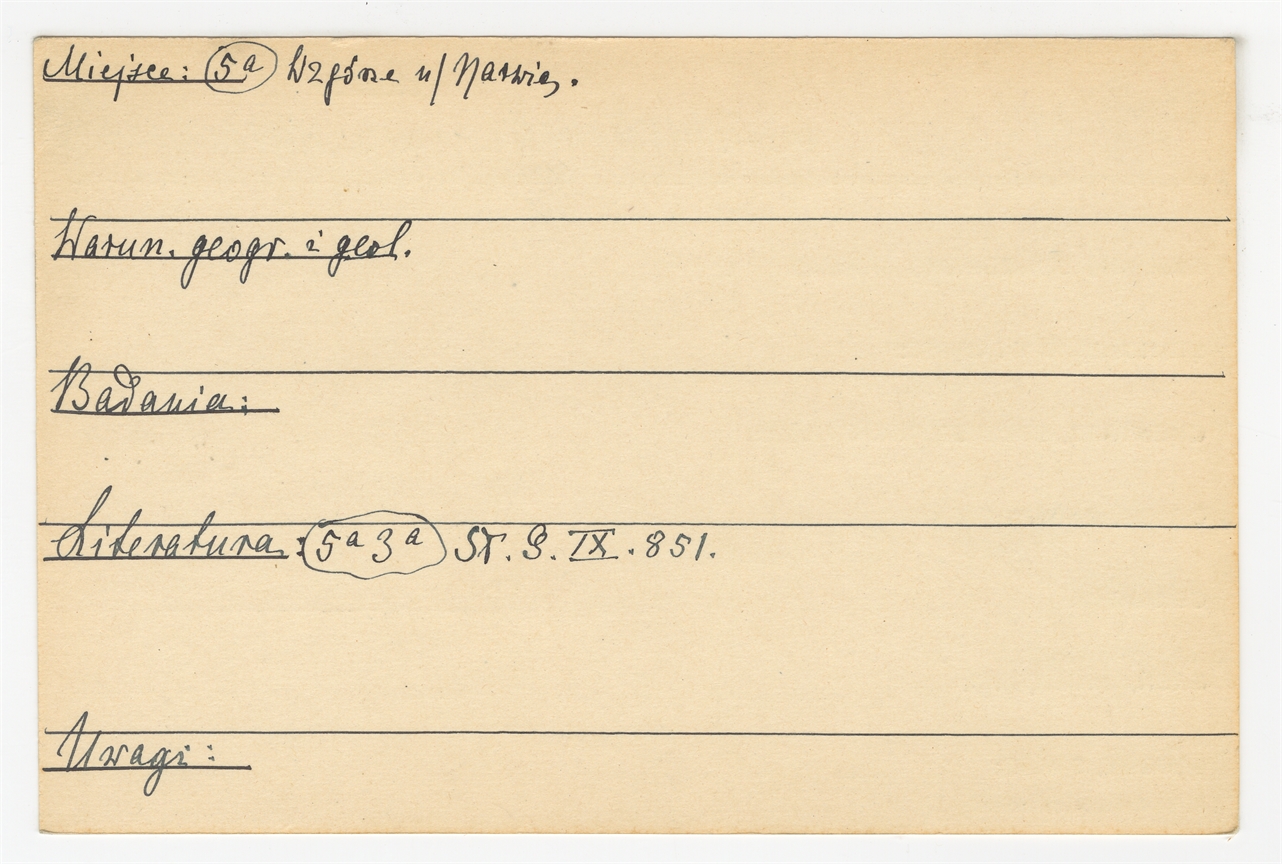 Miejsce: 5a Wzgórze n/ Narwią.
Warun. geogr. i geol.
Badania:
Literatura: 5a 3a Sł. G. IX. 851.
Uwagi: